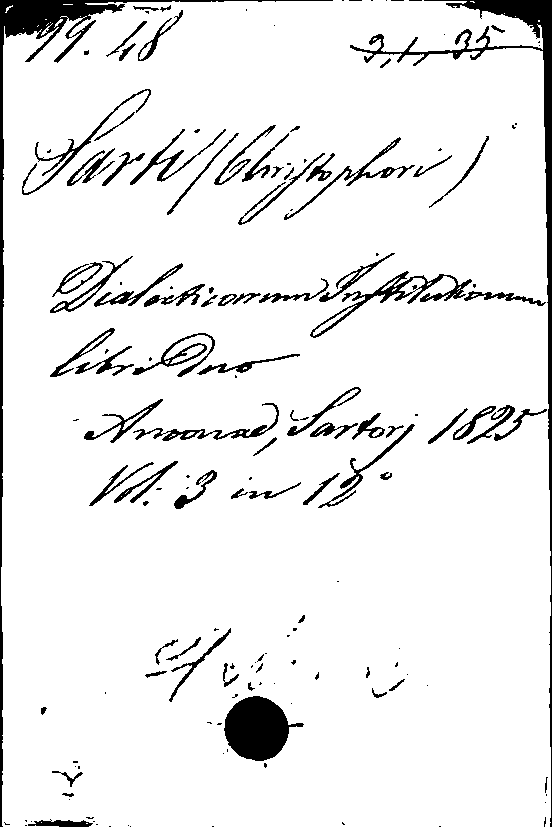 99. 48
3, 1, 35
Sarti (Christophori)
Dialecticarum Institutionum
libri Duo
Anconae, Sartorj 1825
Vol. 3 in 12°